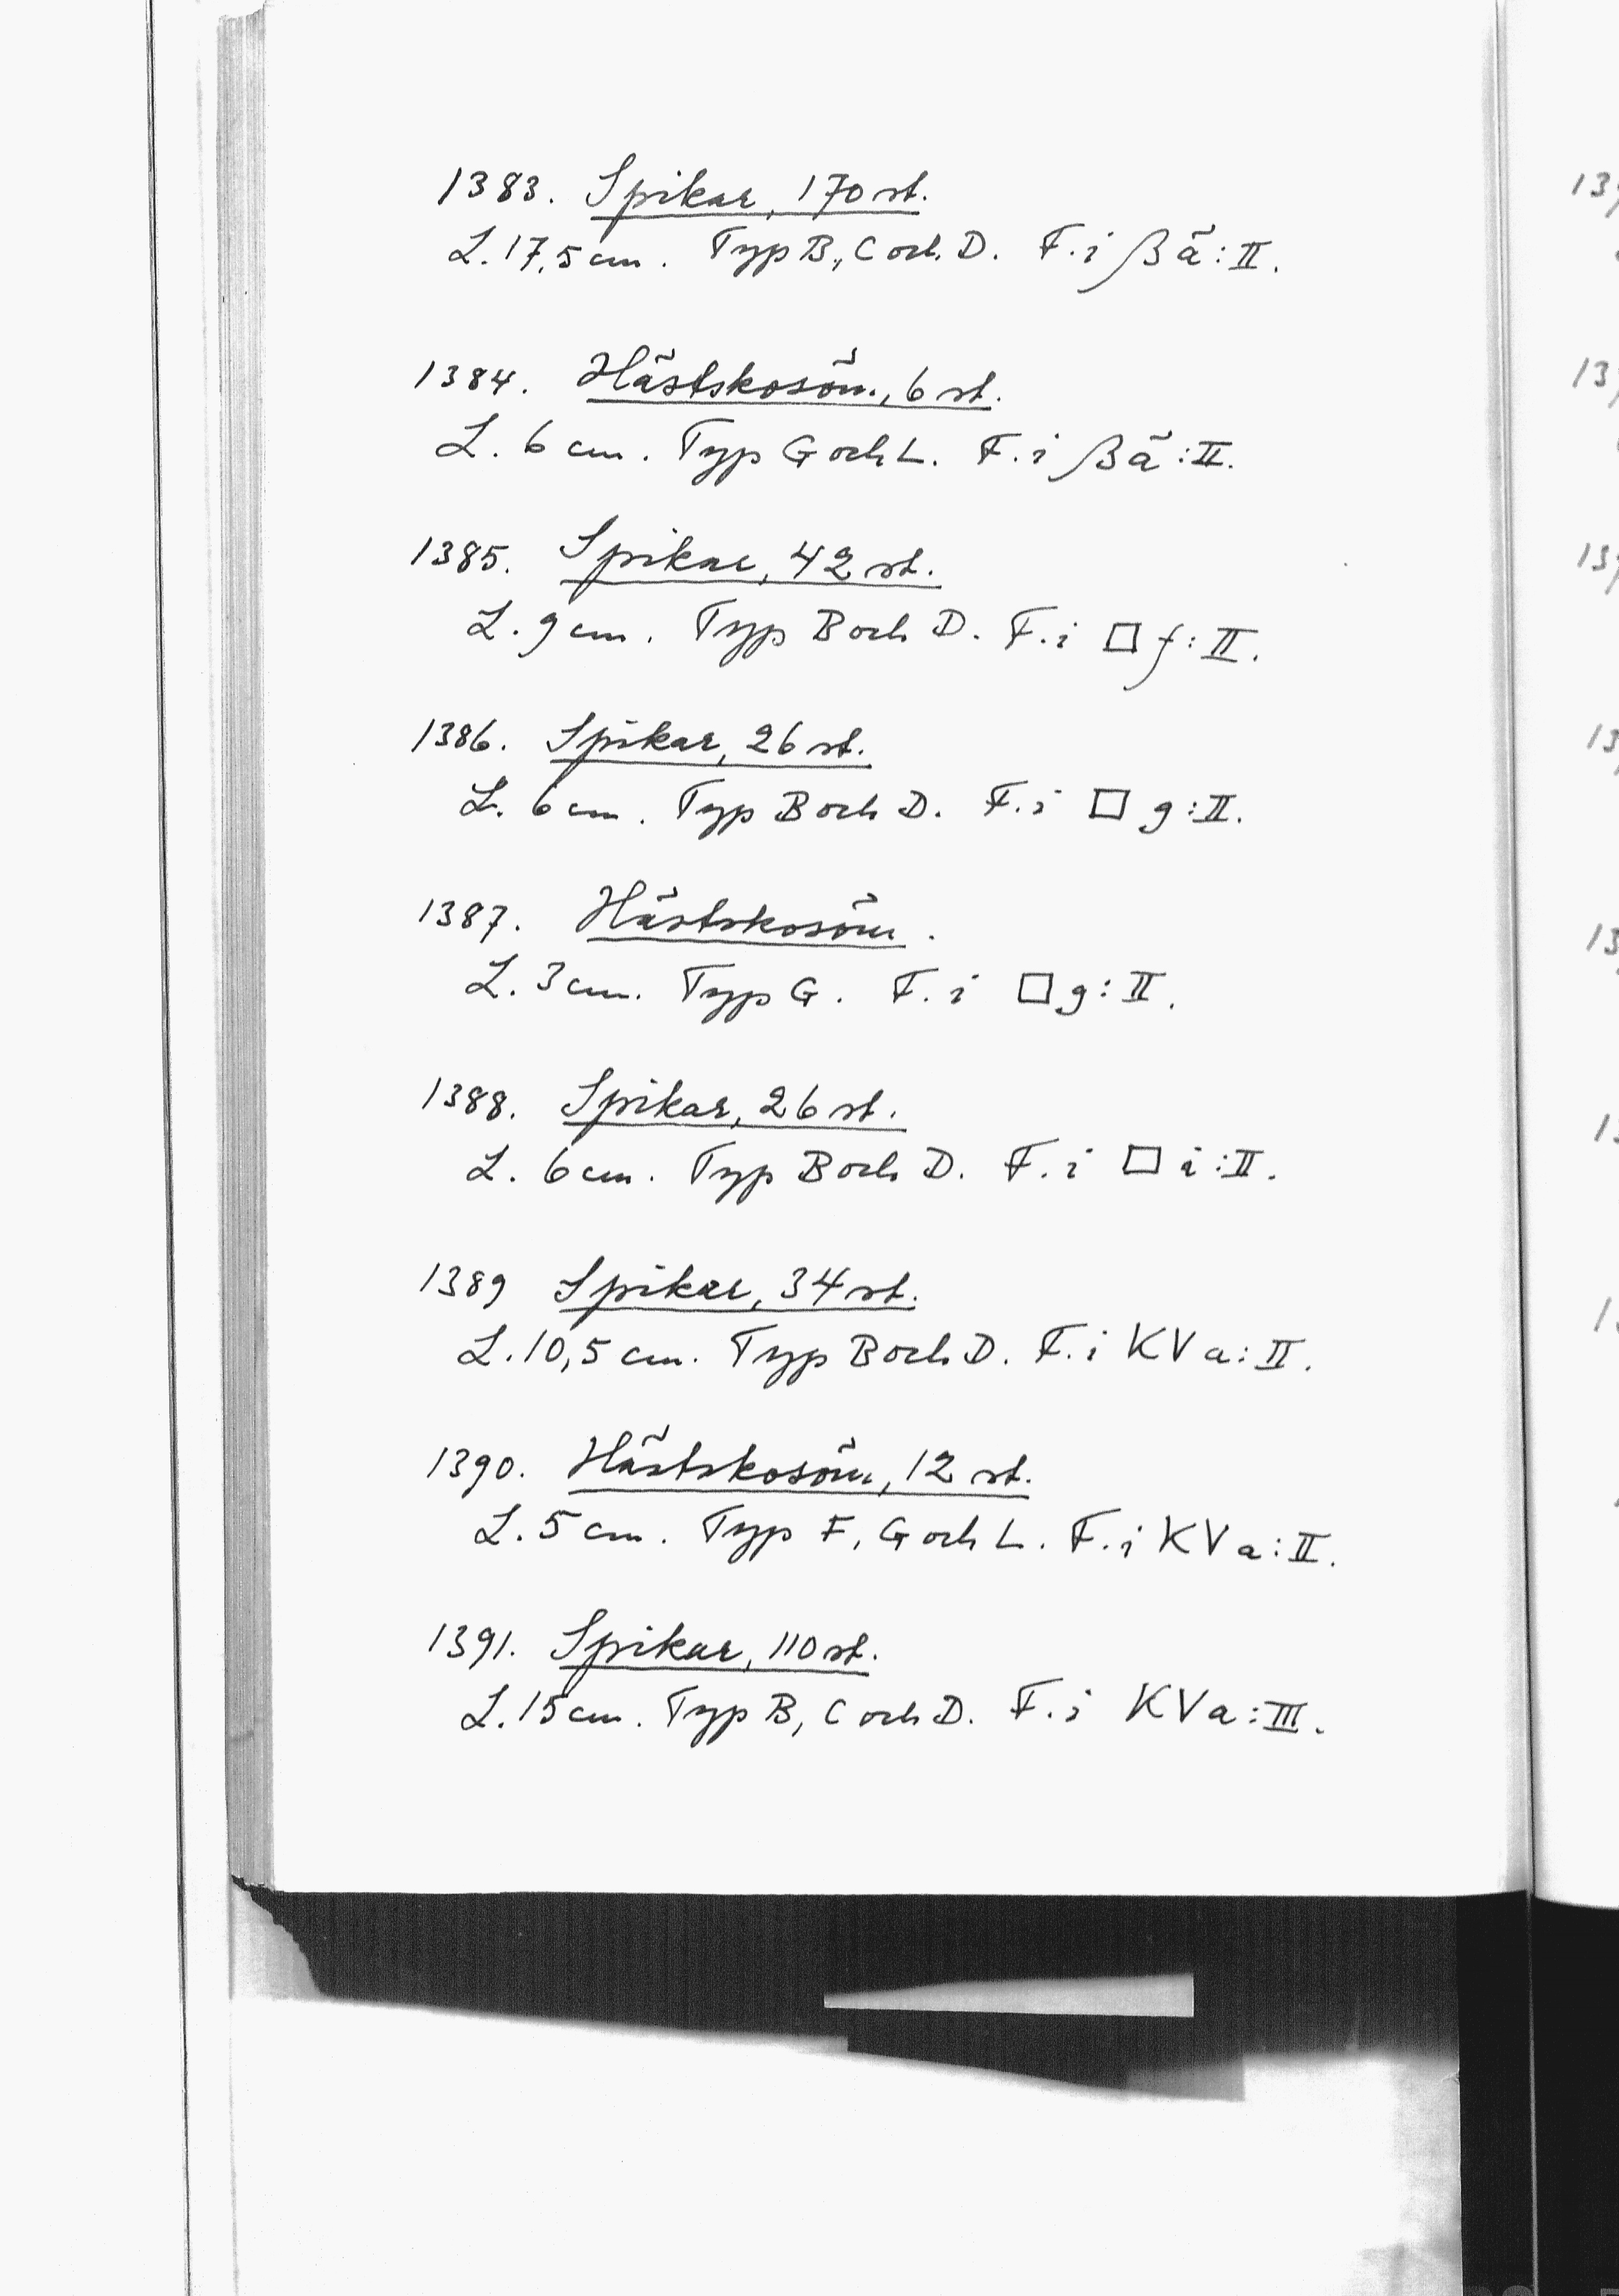 1383. Spikar, 170 st.
L. 17,5 cm. Typ B, C och D. F. i β ä : II.
1384. Hästskosöm, 6 st.
L. 6 cm. Typ G och L. F. i β ä : II.
1385. Spikar, 42 st.
L. 9 cm. Typ B och D. F. i □ f : II.
1386. Spikar, 26 st.
L. 6 cm. Typ B och D. F. i □ g : II.
1387. Hästskosöm.
L. 3 cm. Typ G. F. i □ g : II.
1388. Spikar, 26 st.
L. 6 cm. Typ B och D. F. i □ i : II.
1389 Spikar, 34 st.
L. 10,5 cm. Typ B och D. F. i KV a : II.
1390. Hästskosöm, 12 st.
L. 5 cm. Typ F, G och L. F. i KV a : II.
1391. Spikar, 110 st.
L. 15 cm. Typ B, C och D. F. i KV a : III.